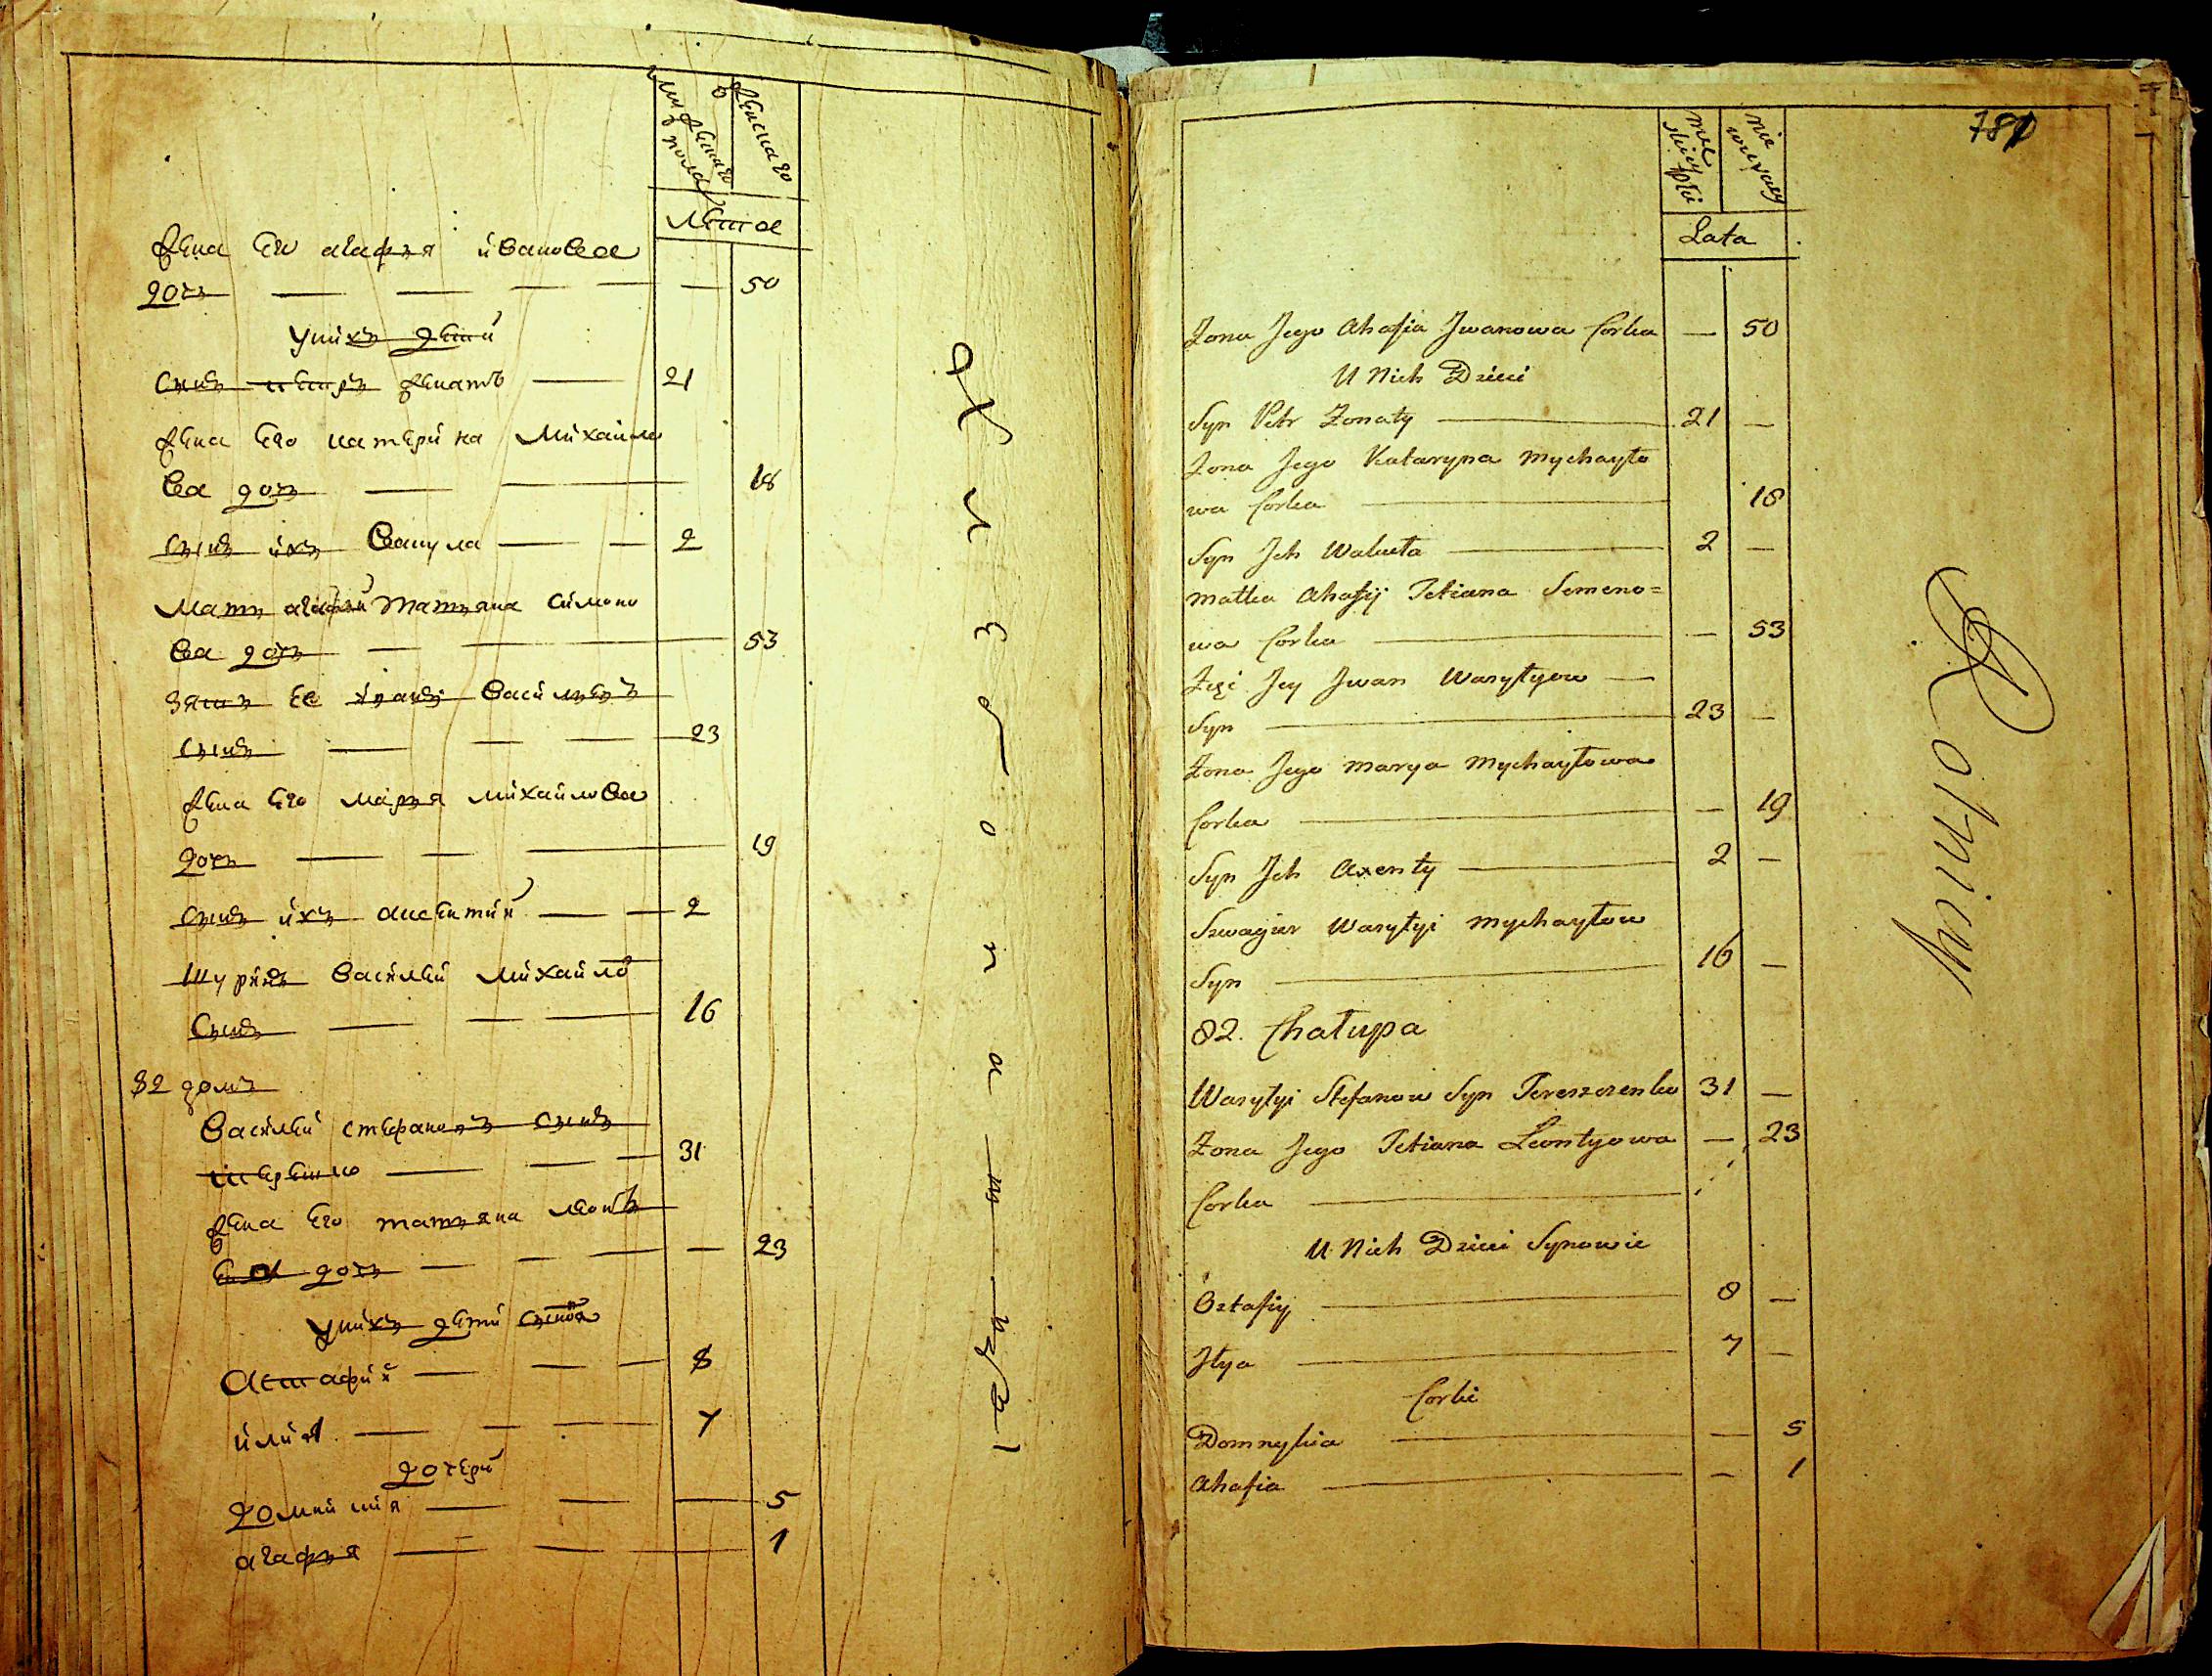 мужескаго пола
женскаго
Лѣта
жена его агафья иванова
дочь — 50
у нихъ дѣти
сынъ петръ женатъ — 21
жена его катерина михайло
ва дочь — 18
сынъ ихъ вакула — 2
мать агафьи татьяна симоно
ва дочь — 53
зять ее иванъ васильевъ
сынъ — 23
жена его марья михайлова
дочь — 19
сынъ ихъ аксентий — 2
шуринъ василей михайло
сынъ — 16
82 домъ
василей стефановъ сынъ
терешко — 31
жена его татьяна леонтье
ва дочь — 23
у нихъ дети сыновя
астафий — 8
илия — 7
дочери
домникия — 5
агафья — 1
781
Lata
Żona Jego Ahafia Jwanowa Corka — 50
U Nich Dzieci
Syn Petr Żonaty — 21 —
Żona Jego Kataryna Mychayło
wa Corka — 18
Syn Jch Wakuła — 2 —
Matka Ahafij Tetiana Semeno=
wa Corka — 53
Zięć Jey Jwan Wasylyow —
Syn — 23 —
Żona Jego Marya Mychayłowa
Corka — 19
Syn Jch Axenty — 2 —
Szwagier Wasylyi Mychayłow
Syn — 16 —
82. Chałupa
Wasylyi Stefanow Syn Tereszczenko 31 —
Żona Jego Tetiana Leontyowa — 23
Corka —
U Nich Dzieci Synowie
Ostafiy — 8 —
Jlya — 7 —
Corki
Domnykia — 5
Ahafia — 1
Rolnicy